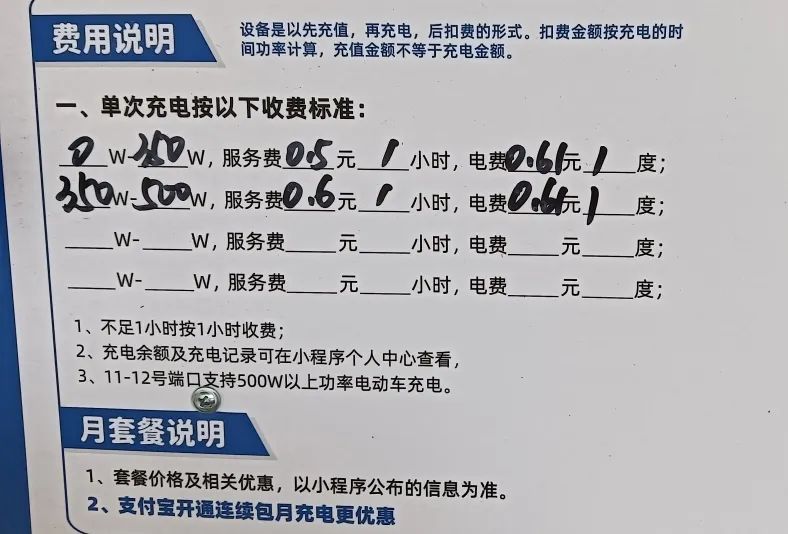 费用说明
设备是以先充值，再充电，后扣费的形式。扣费金额按充电的时
间功率计算，充值金额不等于充电金额。
一、单次充电按以下收费标准：
0 W-350 W，服务费0.5元 1 小时，电费0.61元 1 度；
350W-500W，服务费0.6元 1 小时，电费0.61元 1 度；
____W-____W，服务费____元____小时，电费____元____度；
____W-____W，服务费____元____小时，电费____元____度；
1、不足1小时按1小时收费；
2、充电余额及充电记录可在小程序个人中心查看，
3、11-12号端口支持500W以上功率电动车充电。
月套餐说明
1、套餐价格及相关优惠，以小程序公布的信息为准。
2、支付宝开通连续包月充电更优惠